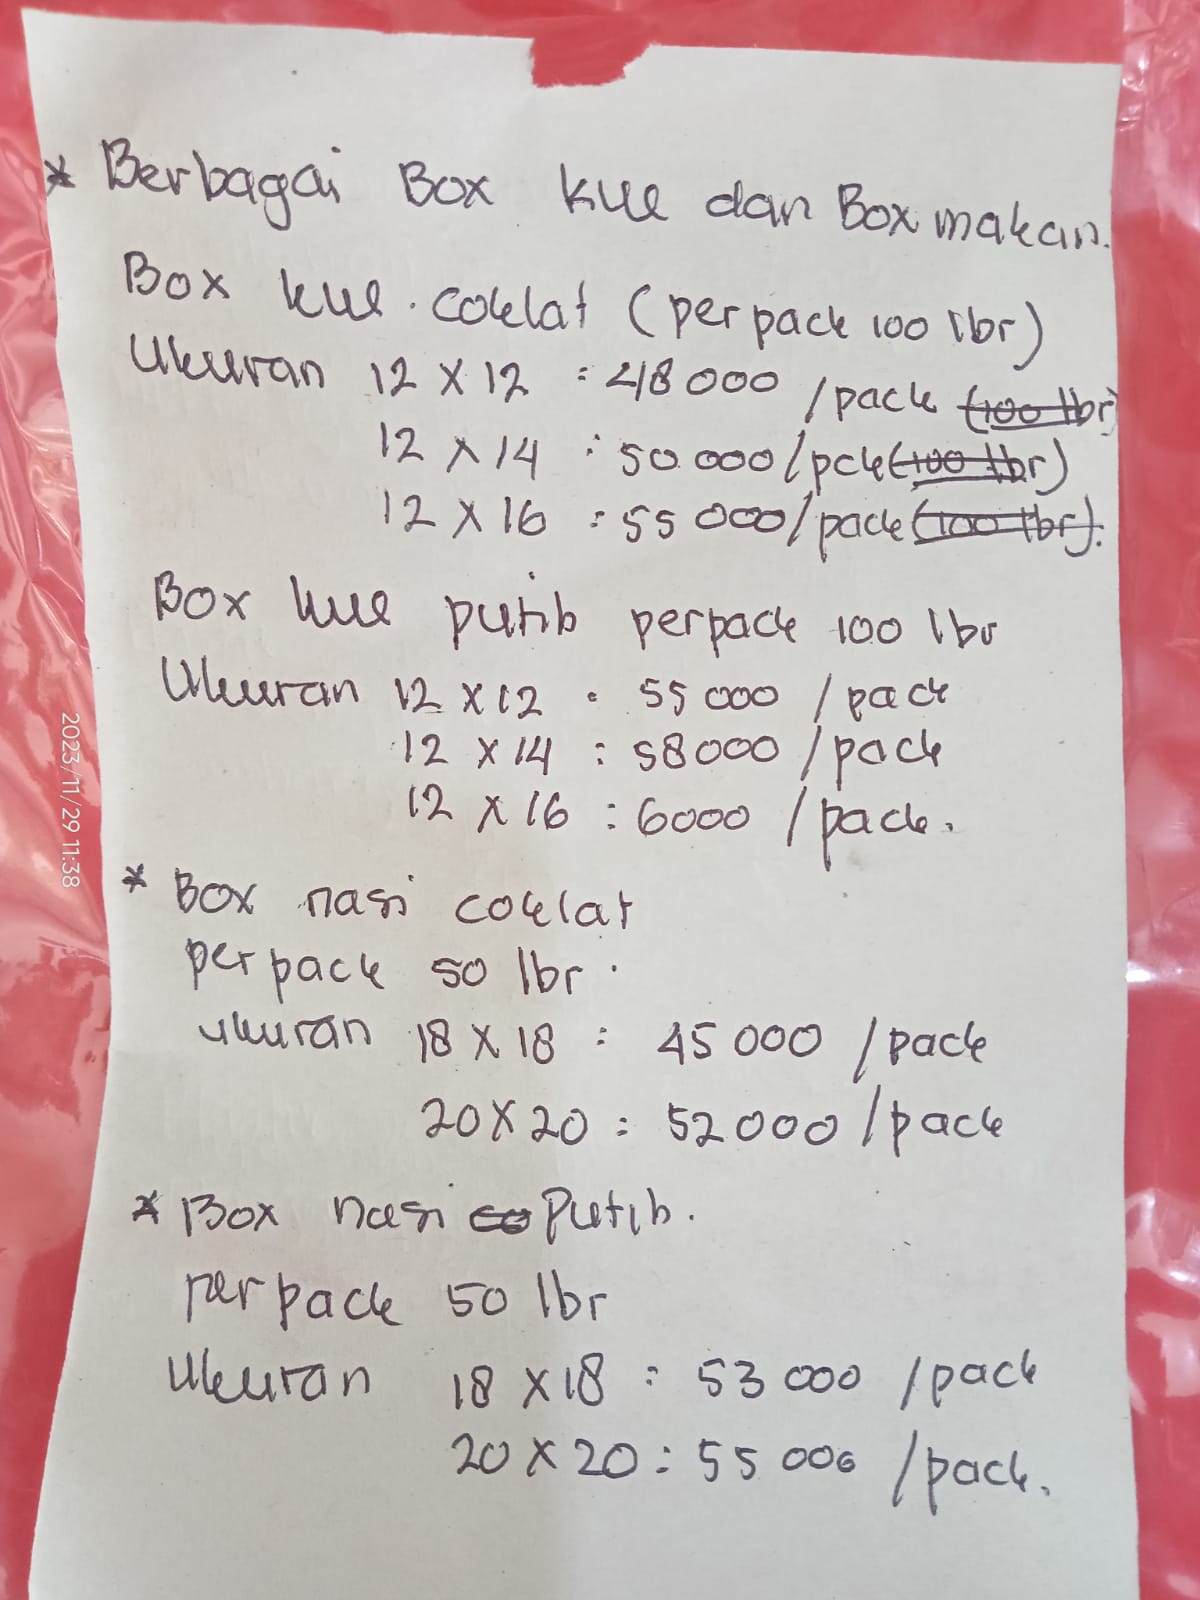 * Berbagai Box kue dan Box makan.
Box kue coklat (per pack 100 lbr)
Ukuran 12 x 12 : 48 000 /pack (100 lbr)
12 x 14 : 50 000 /pck (100 lbr)
12 x 16 : 55 000 /pack (100 lbr).
Box kue putih perpack 100 lbr
Ukuran 12 x 12 : 55 000 /pack
12 x 14 : 58000 /pack
12 x 16 : 6000 /pack.
* Box nasi coklat
per pack 50 lbr.
ukuran 18 x 18 : 45 000 /pack
20 x 20 : 52 000 /pack
* Box nasi co Putih.
per pack 50 lbr
Ukuran 18 x 18 : 53 000 /pack
20 x 20 : 55 000 /pack.
2023/11/29 11:38